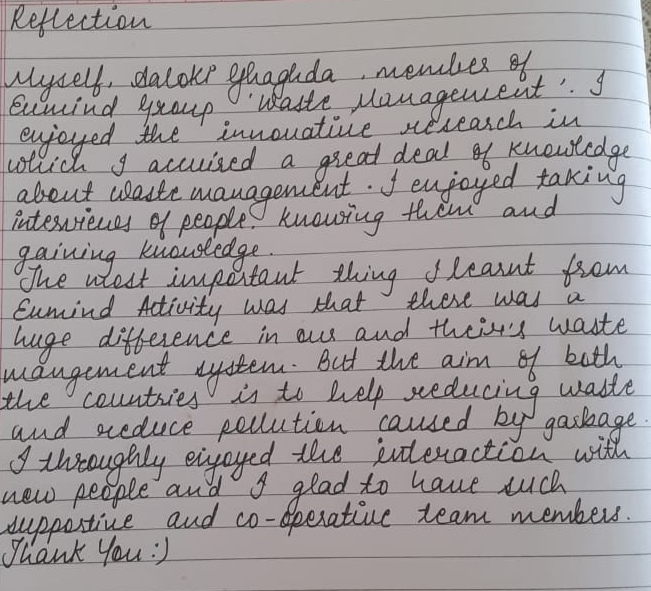 Reflection
Myself, Saloki Ghaghda, member of
Eumind Group 'Waste Management'. I
enjoyed the innovative research in
which I accuired a great deal of knowledge
about waste management. I enjoyed taking
interviews of people. knowing them and
gaining knowledge.
The most important thing I learnt from
Eumind Activity was that there was a
huge difference in our and their's waste
mangement system. But the aim of both
the countries is to help reducing waste
and reduce pollution caused by garbage.
I throughly enjoyed the interaction with
new people and I glad to have such
supportive and co-operative team members.
Thank You :)